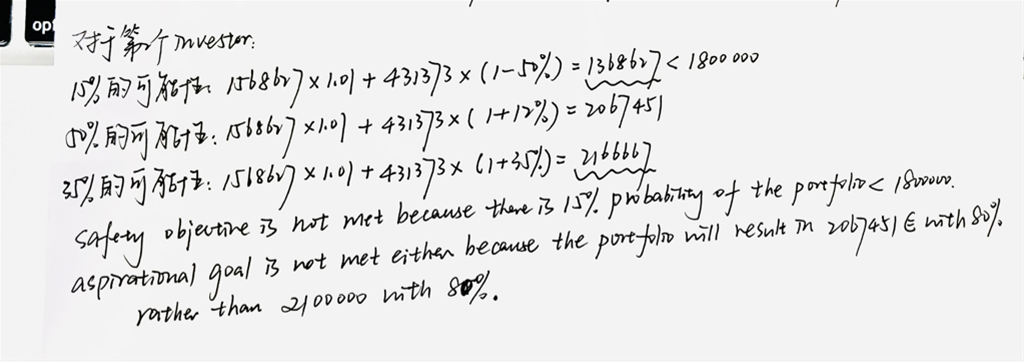 opt
对于第个investor:
15%的可能性: 1568627×1.01 + 431373×(1-50%) = 1368627 < 1800000
50%的可能性: 1568627×1.01 + 431373×(1+12%) = 2067451
35%的可能性: 1568627×1.01 + 431373×(1+35%) = 2166667
safety objective is not met because there is 15% probability of the portfolio < 1800000.
aspirational goal is not met either because the portfolio will result in 2067451€ with 80%
rather than 2100000 with 80%.